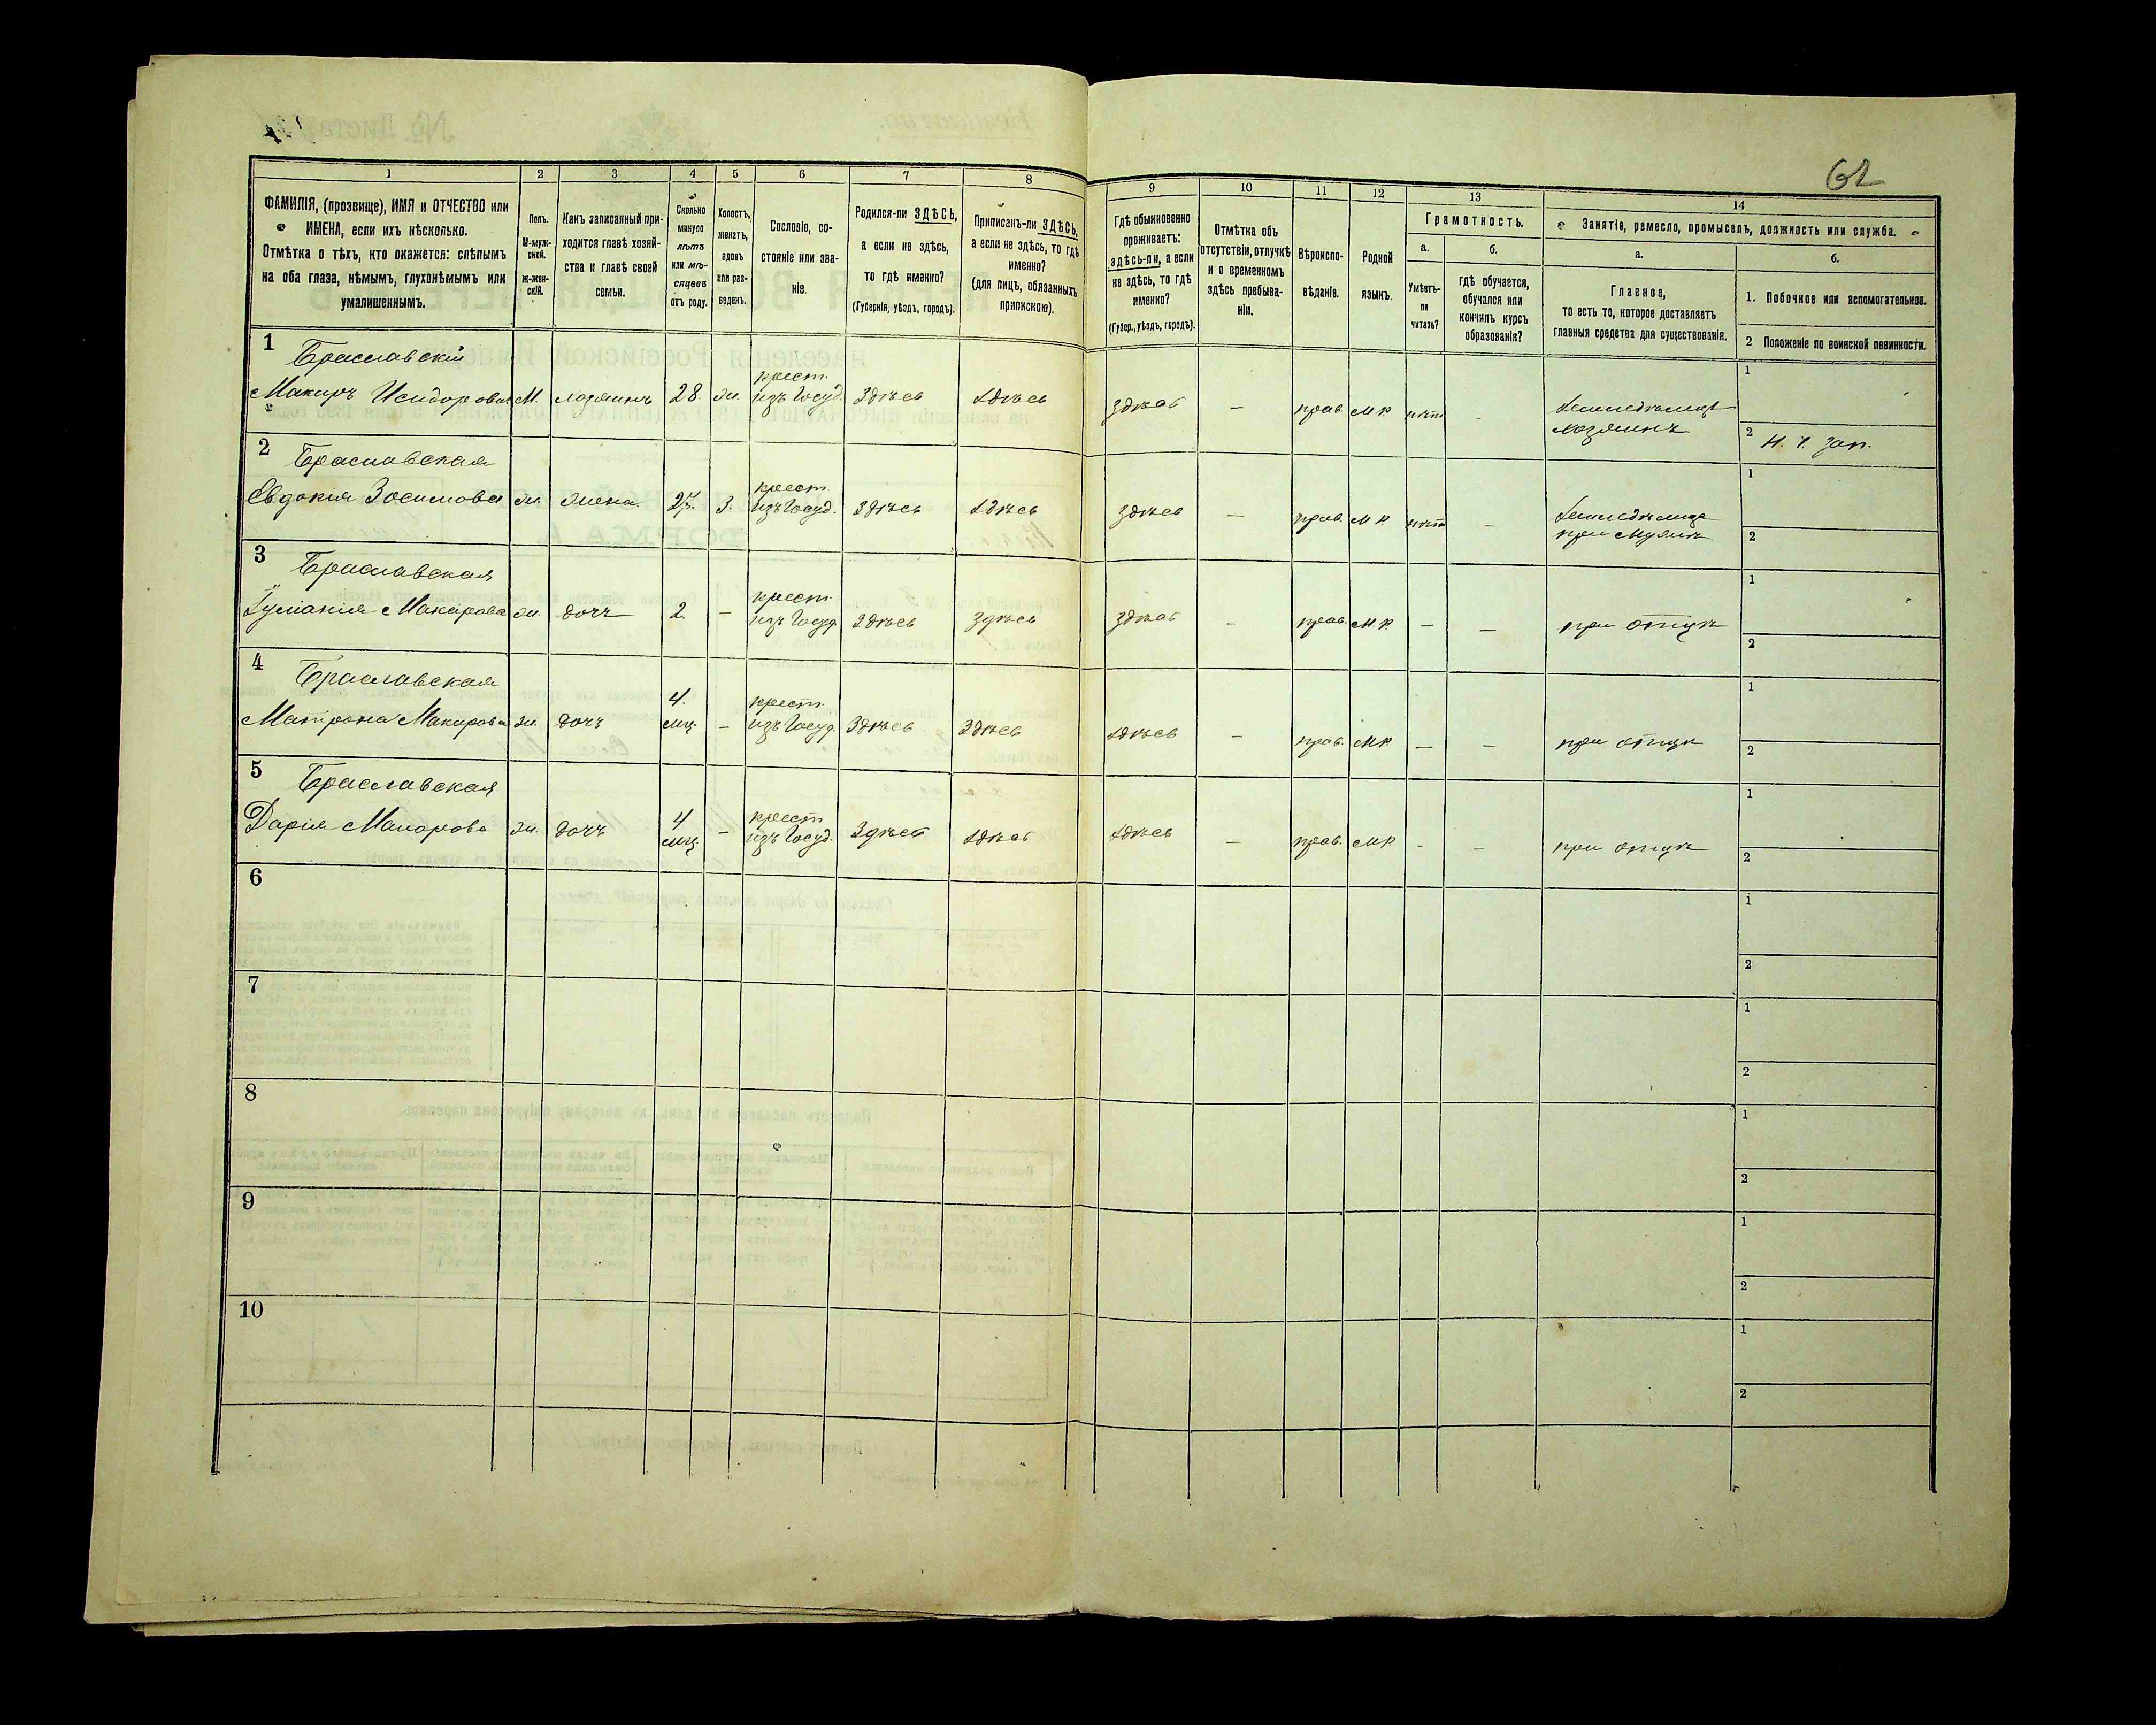 62
1 2 3 4 5 6 7 8 9 10 11 12 13 14
ФАМИЛІЯ, (прозвище), ИМЯ и ОТЧЕСТВО или
ИМЕНА, если ихъ нѣсколько.
Отмѣтка о тѣхъ, кто окажется: слѣпымъ
на оба глаза, нѣмымъ, глухонѣмымъ или
умалишеннымъ.
Полъ.
М-муж-
ской.
Ж-жен-
скій.
Какъ записанный при-
ходится главѣ хозяй-
ства и главѣ своей
семьи.
Сколько
минуло
лѣтъ
или мѣ-
сяцевъ
отъ роду.
Холостъ,
женатъ,
вдовъ
или раз-
веденъ.
Сословіе, со-
стояніе или зва-
ніе.
Родился-ли ЗДѢСЬ,
а если не здѣсь,
то гдѣ именно?
(Губернія, уѣздъ, городъ).
Приписанъ-ли ЗДѢСЬ,
а если не здѣсь, то гдѣ
именно?
(для лицъ, обязанныхъ
припискою).
Гдѣ обыкновенно
проживаетъ:
здѣсь-ли, а если
не здѣсь, то гдѣ
именно?
(Губер., уѣздъ, городъ).
Отмѣтка объ
отсутствіи, отлучкѣ
и о временномъ
здѣсь пребыва-
ніи.
Вѣроиспо-
вѣданіе.
Родной
языкъ.
Грамотность.
а.
Умѣетъ-
ли
читать?
б.
гдѣ обучается,
обучался или
кончилъ курсъ
образованія?
Занятіе, ремесло, промыселъ, должность или служба.
а.
Главное,
то есть то, которое доставляетъ
главныя средства для существованія.
б.
1. Побочное или вспомогательное.
2 Положеніе по воинской повинности.
1 Браславскій крест. 1
Макаръ Исидоровъ М. хозяинъ 28. ж. изъ Госуд. Здѣсь Здѣсь здѣсь — прав. МР нѣт - Земледѣлецъ
хозяинъ 2 Н. 1. зап.
2 Браславская крест. 1
Евдокія Зосимова ж. жена. 27. З. изъ Госуд. Здѣсь Здѣсь здѣсь — прав. МР нѣт —
при мужѣ 2
3 Браславская крест. 1
Макарова ж. дочь 2 — изъ Госуд Здѣсь Здѣсь здѣсь — прав. МР. — — при отцѣ
2
4 Браславская 4. крест. 1
Матрона Макарова ж. дочь мц. — изъ Госуд. Здѣсь Здѣсь Здѣсь — прав. МР — — при отцѣ
2
5 Браславская 4 крест 1
Дарія Макарова ж. дочь мц. — изъ Госуд. Здѣсь Здѣсь Здѣсь — прав. МР - — при отцѣ
2
6 1
2
7 1
2
8 1
2
9 1
2
10 1
2